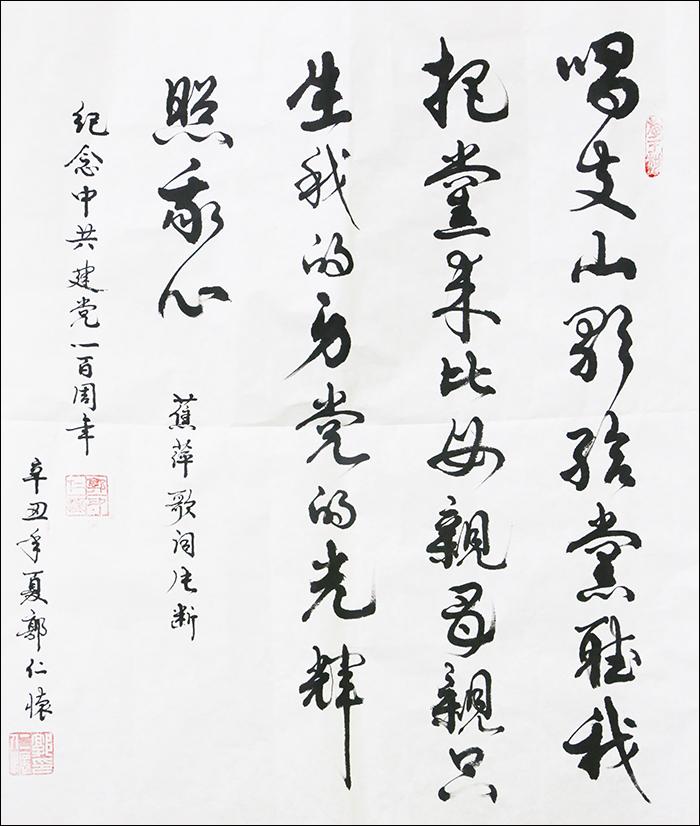 唱支山歌给黨聽我
把黨来比母親母親只
生我的身党的光辉
照我心
蕉萍歌词片断
纪念中共建党一百周年
辛丑年夏郭仁怀